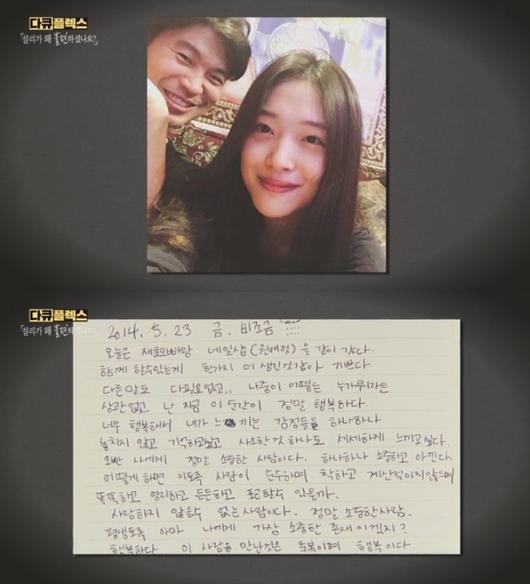 다큐플렉스
「설리가 왜 불편하셨나요?」
다큐플렉스
「설리가 왜 불편하셨나요?」
2014. 5. 23 금. 비조금
오늘은 네일샵 을 같이 갔다.
함께 할수있는게 한가지 더 생긴것같아 기쁘다.
다른말도 다필요없고.. 나중이 어떻든 누가뭐라든
상관없고 난 지금 이순간이 정말 행복하다.
너무 행복해서 내가 느끼는 감정들을 하나하나
놓치지 않고 기억하고싶고 사소한것 하나도 세세하게 느끼고싶다.
오빤 나에게 정말 소중한 사람이다. 하나하나 소중하고 아낀다.
어떻게 하면 이토록 사람이 순수하며 착하고 계산적이지않으며
똑똑하고 영리하고 든든하고 있을까.
사랑하지 않을수 없는사람이다. 정말 소중한사람.
평생토록 아마 나에게 가장 소중한 존재이겠지?
행복하다. 이 사람을 만난것은 축복이며 행복이다.